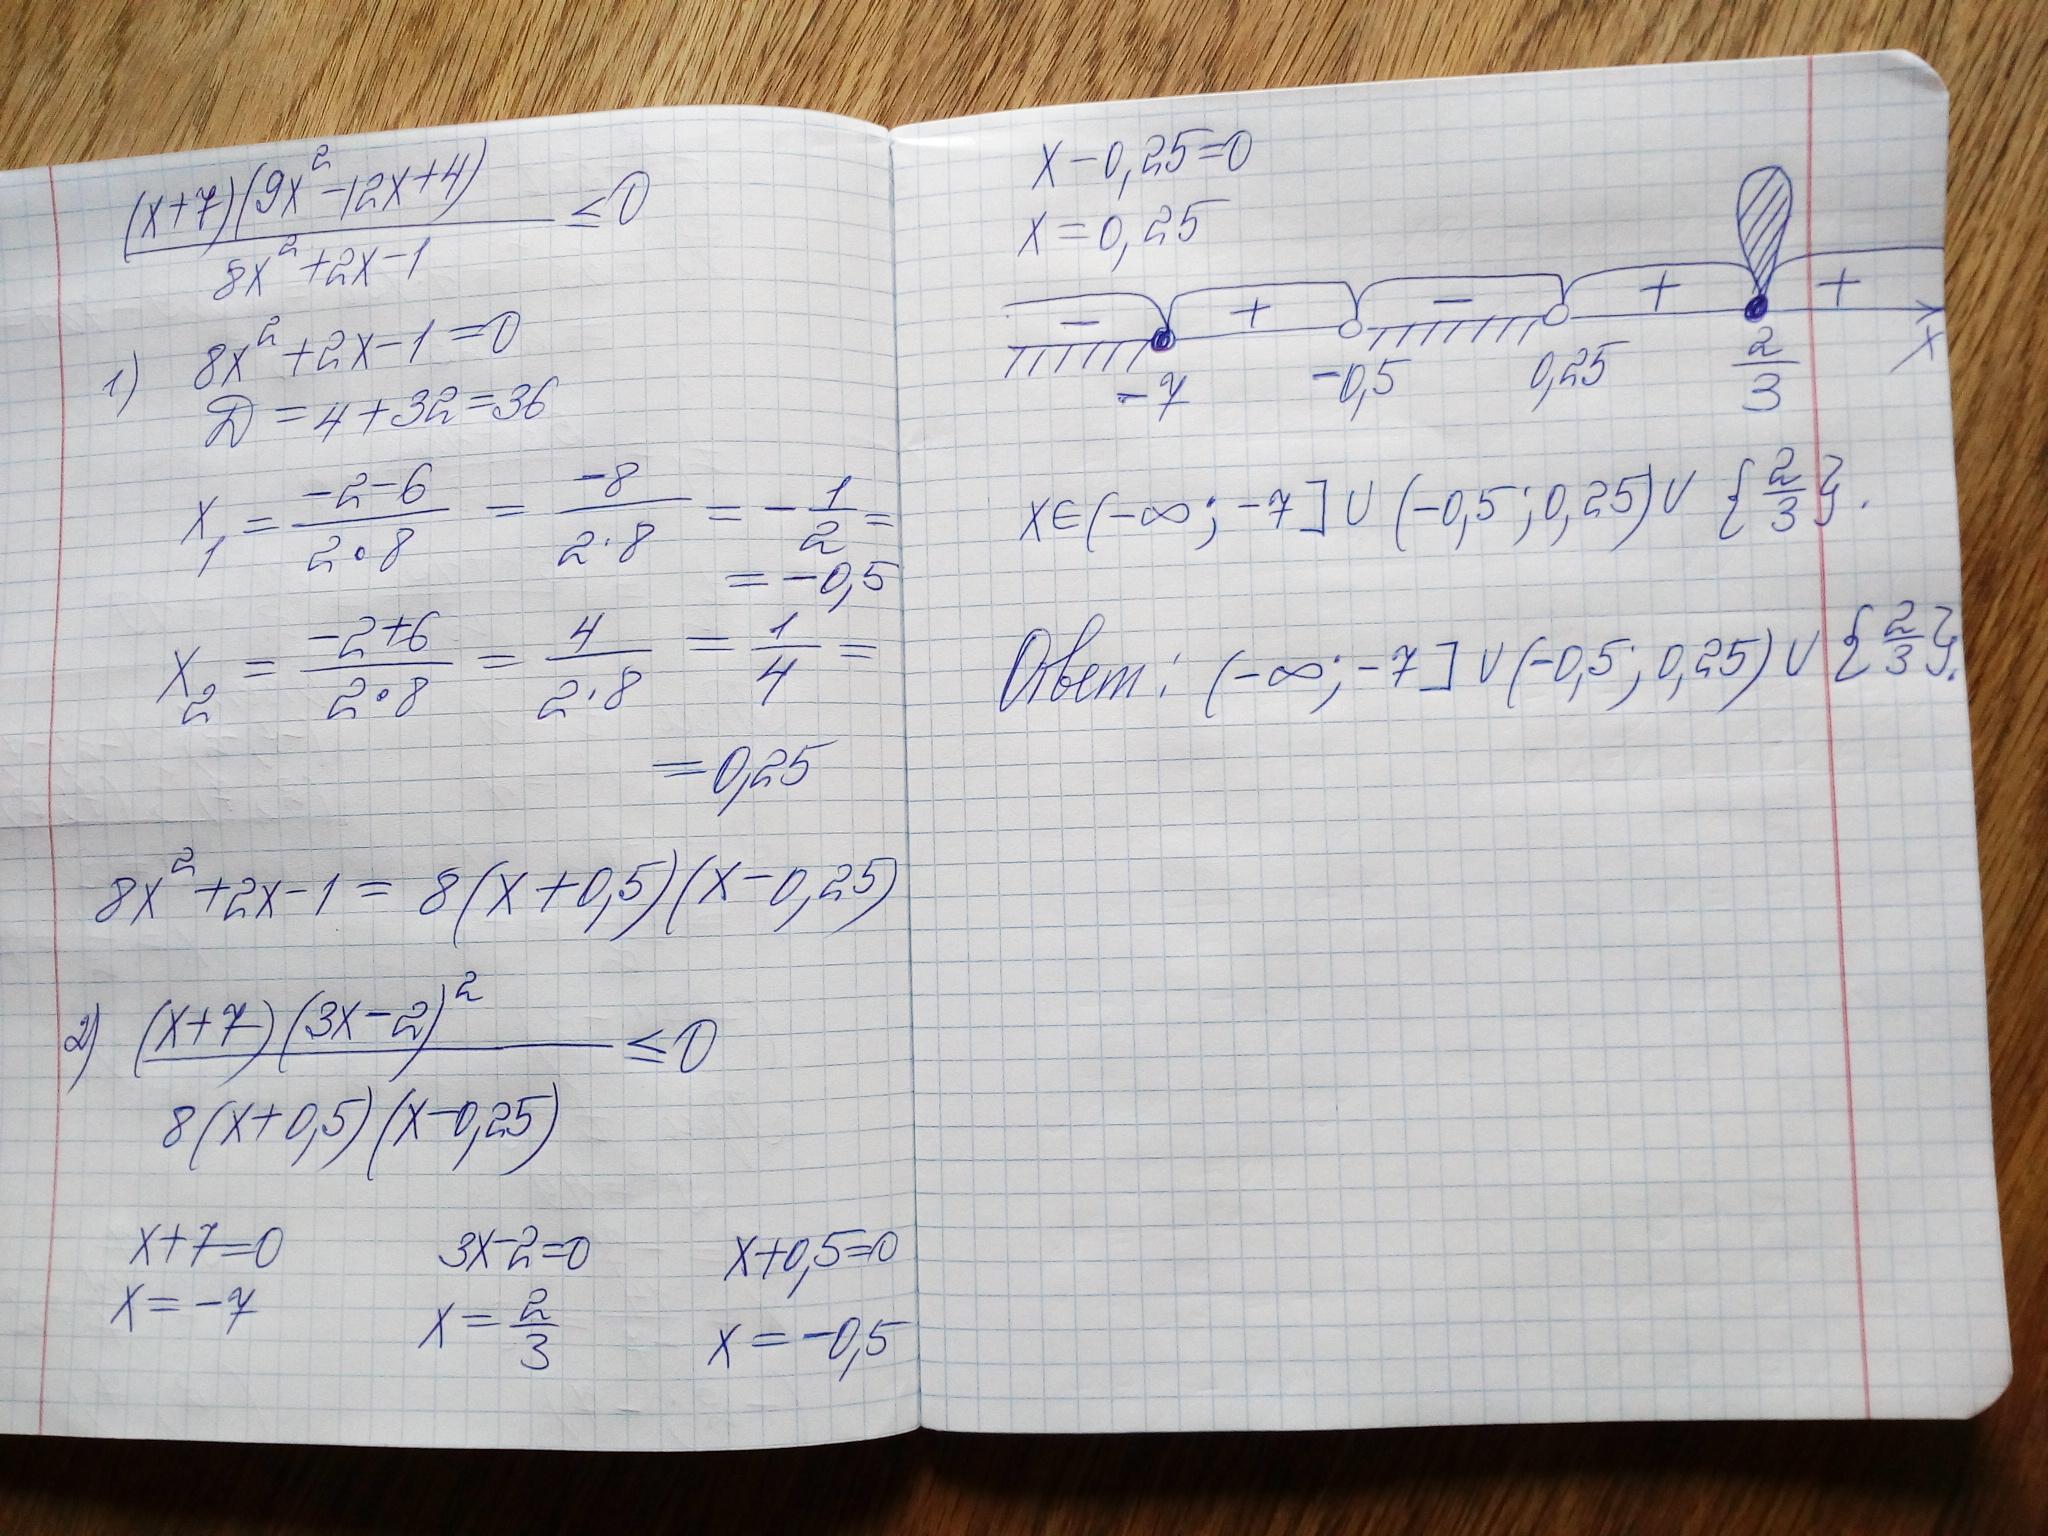 (x+7)(9x²-12x+4)/(8x²+2x-1) ≤0
1) 8x²+2x-1=0
D=4+32=36
x₁ = (-2-6)/(2·8) = -8/(2·8) = -1/2 =
= -0,5
x₂ = (-2+6)/(2·8) = 4/(2·8) = 1/4 =
=0,25
8x²+2x-1 = 8(x+0,5)(x-0,25)
2) (x+7)(3x-2)²/(8(x+0,5)(x-0,25)) ≤0
x+7=0 3x-2=0 x+0,5=0
x=-7 x=2/3 x=-0,5
x-0,25=0
x=0,25
- + - + +
-7 -0,5 0,25 2/3 x
x∈(-∞;-7]∪(-0,5;0,25)∪{2/3}.
Ответ: (-∞;-7]∪(-0,5;0,25)∪{2/3}.